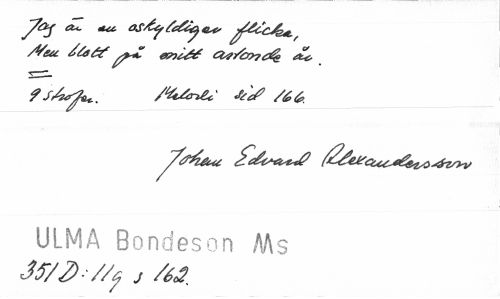 Jag är en oskyldiger flicka,
Men blott på mitt artonde år.
9 strofer. Melodi sid 166.
Johan Edvard Alexandersson
ULMA Bondeson Ms
351 D:11q s 162.